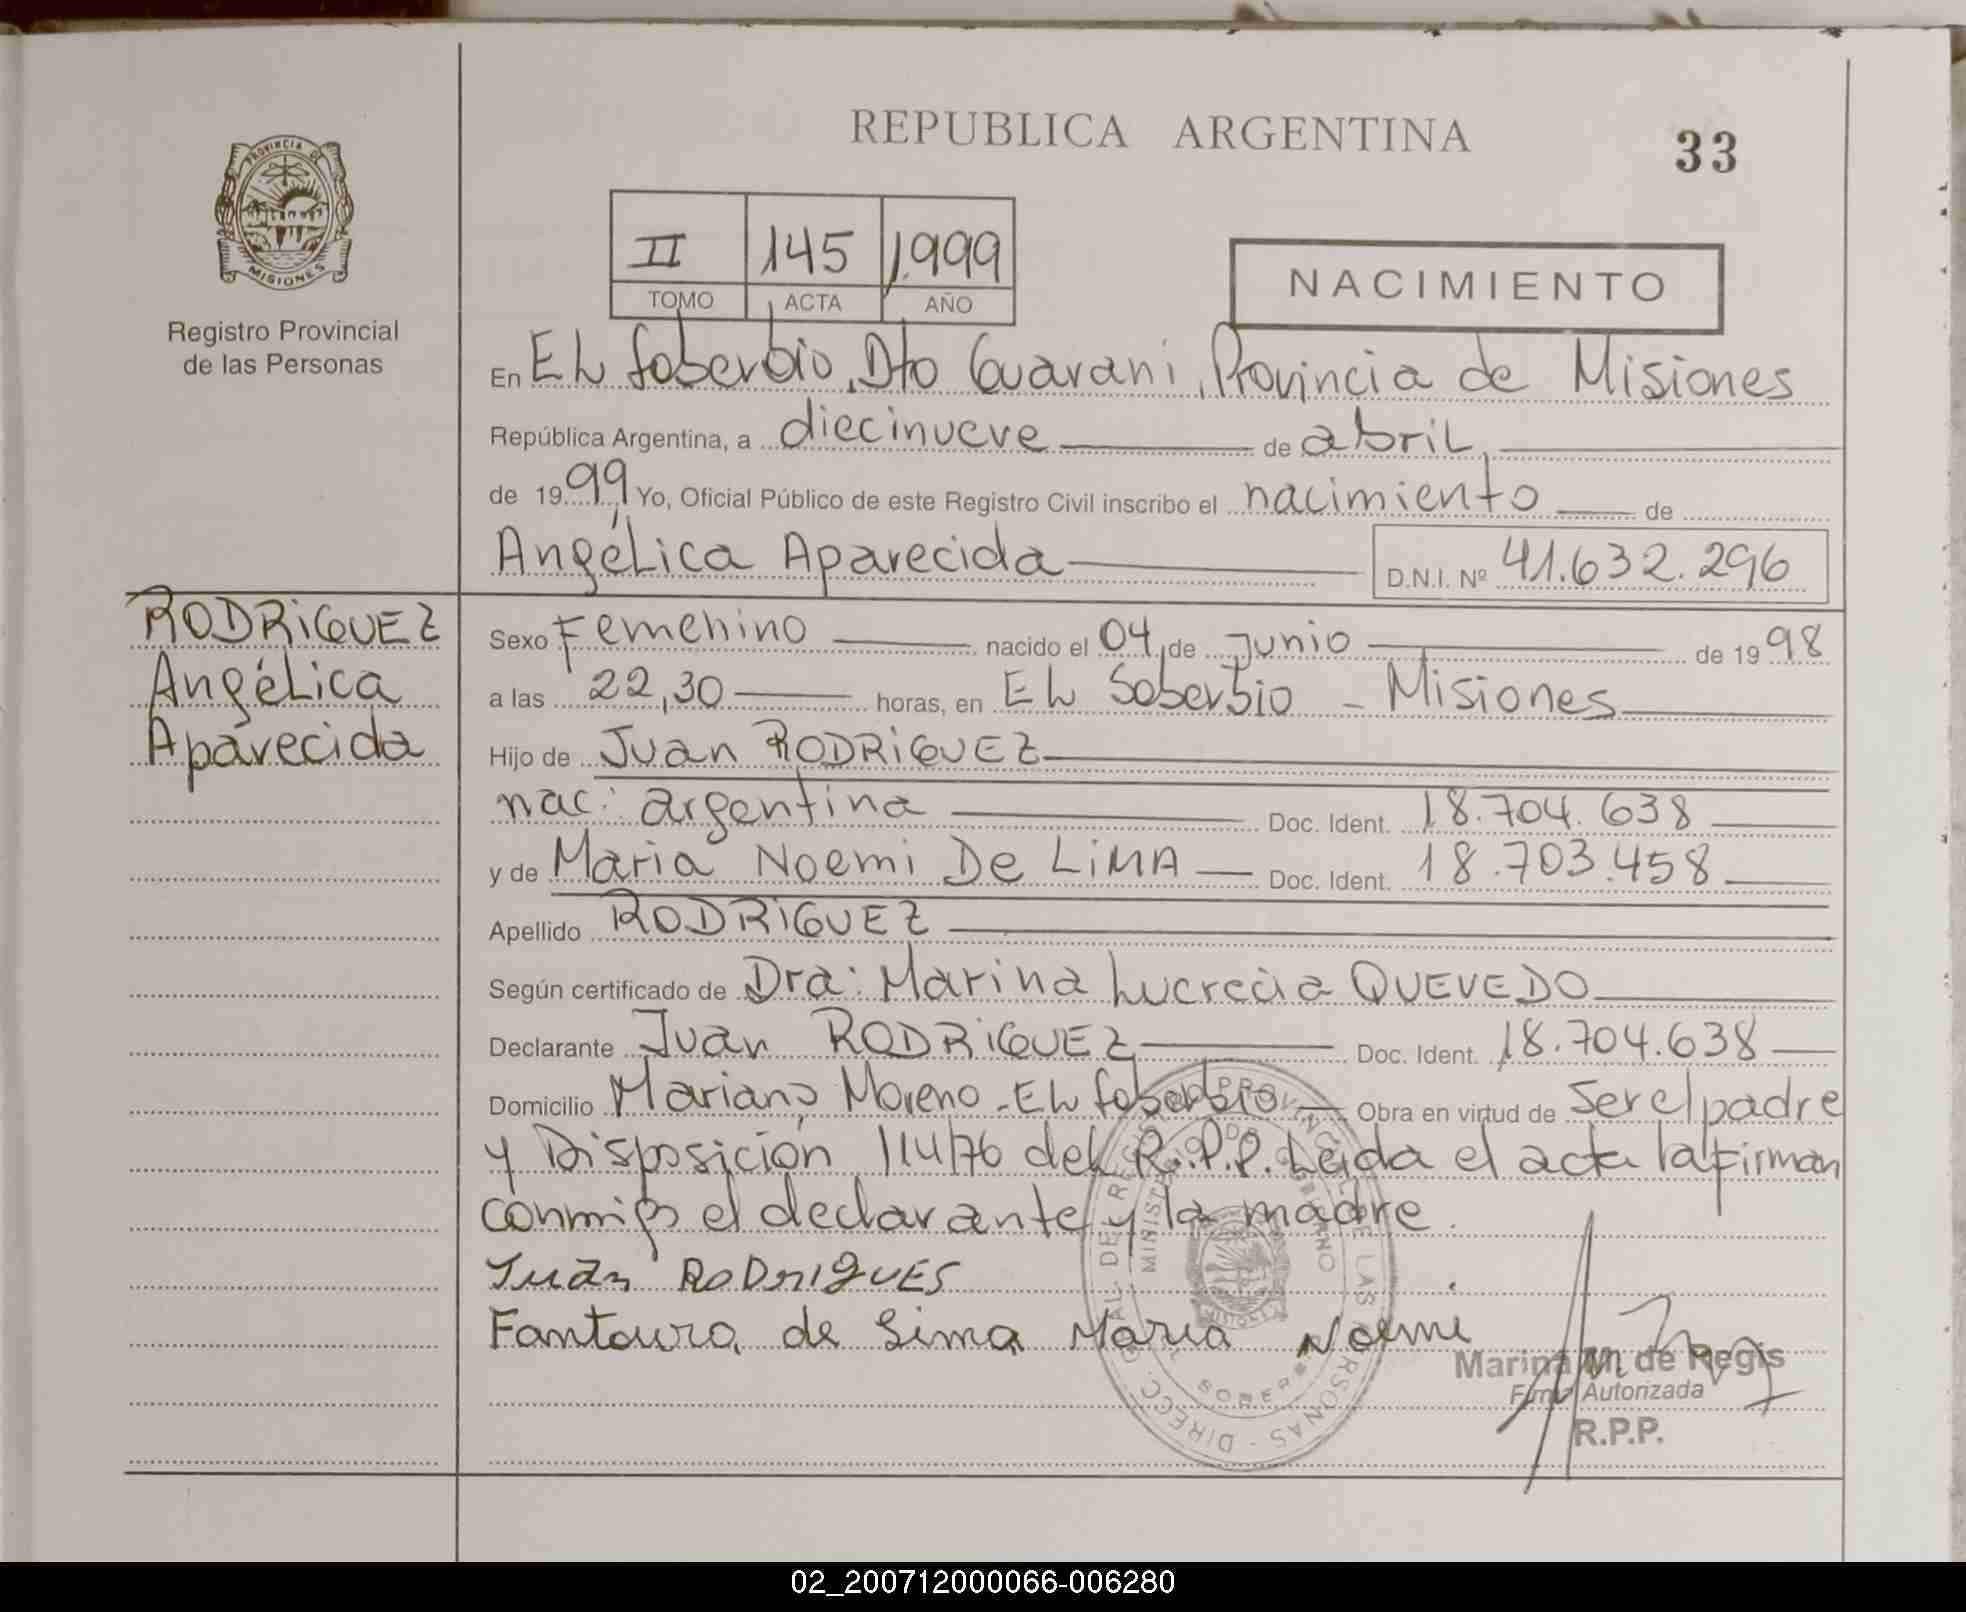 REPUBLICA ARGENTINA
33
PROVINCIA DE
MISIONES
Registro Provincial
de las Personas
II 145 1.999
TOMO ACTA AÑO
NACIMIENTO
En EL Soberbio, Dto Guarani, Provincia de Misiones
República Argentina, a diecinueve de abril,
de 1999 Yo, Oficial Público de este Registro Civil inscribo el nacimiento de
AngéLica Aparecida D.N.I. Nº 41.632.296
RODRiGUEZ
AngéLica
Aparecida
Sexo Femenino nacido el 04 de Junio de 1998
a las 22,30 horas, en EL Soberbio - Misiones
Hijo de Juan RODRiGUEZ
nac: argentina Doc. Ident. 18.704.638
y de Maria Noemi De LiMA Doc. Ident. 18.703.458
Apellido RODRiGUEZ
Según certificado de Dra: Marina Lucrecia QUEVEDO
Declarante Juan RODRiGUEZ Doc. Ident. 18.704.638
Domicilio Mariano Moreno - EL Soberbio Obra en virtud de Ser el padre
y Disposición 114/76 del R.P.P. Leida el acta la firman
conmigo el declarante y la madre.
Juan RODRIGUES
de Lima Maria Noemi
Marina M. de Regis
Firma Autorizada
R.P.P.
02_200712000066-006280